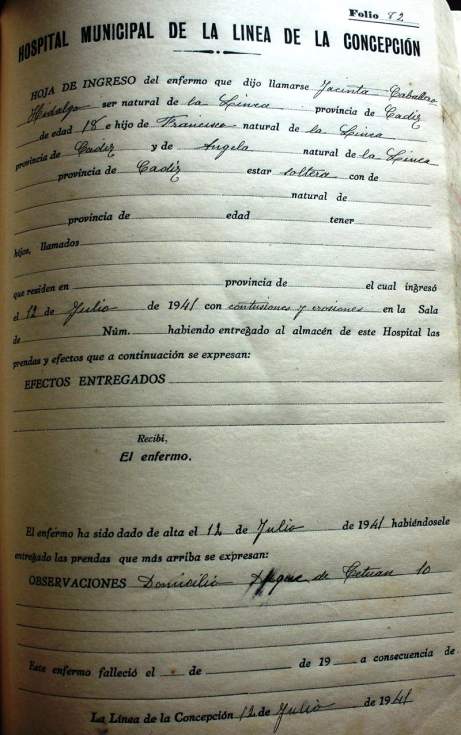 Folio 82
HOSPITAL MUNICIPAL DE LA LINEA DE LA CONCEPCIÓN
HOJA DE INGRESO del enfermo que dijo llamarse Jacinta Caballero
Hidalgo ser natural de la Linea provincia de Cadiz
de edad 18 e hijo de Francisco natural de la Linea
provincia de Cadiz y de Angela natural de la Linea
provincia de Cadiz estar soltera con de
natural de
provincia de edad tener
hijos, llamados
que residen en provincia de el cual ingresó
el 12 de Julio de 1941 con contusiones y erosiones en la Sala
de Núm. habiendo entregado al almacén de este Hospital las
prendas y efectos que a continuación se expresan:
EFECTOS ENTREGADOS
Recibí,
El enfermo.
El enfermo ha sido dado de alta el 12 de Julio de 1941 habiéndosele
entregado las prendas que más arriba se expresan:
OBSERVACIONES Domicilio Duque de Tetuan 10
Este enfermo falleció el de de 19 a consecuencia de
La Línea de la Concepción 12 de Julio de 1941